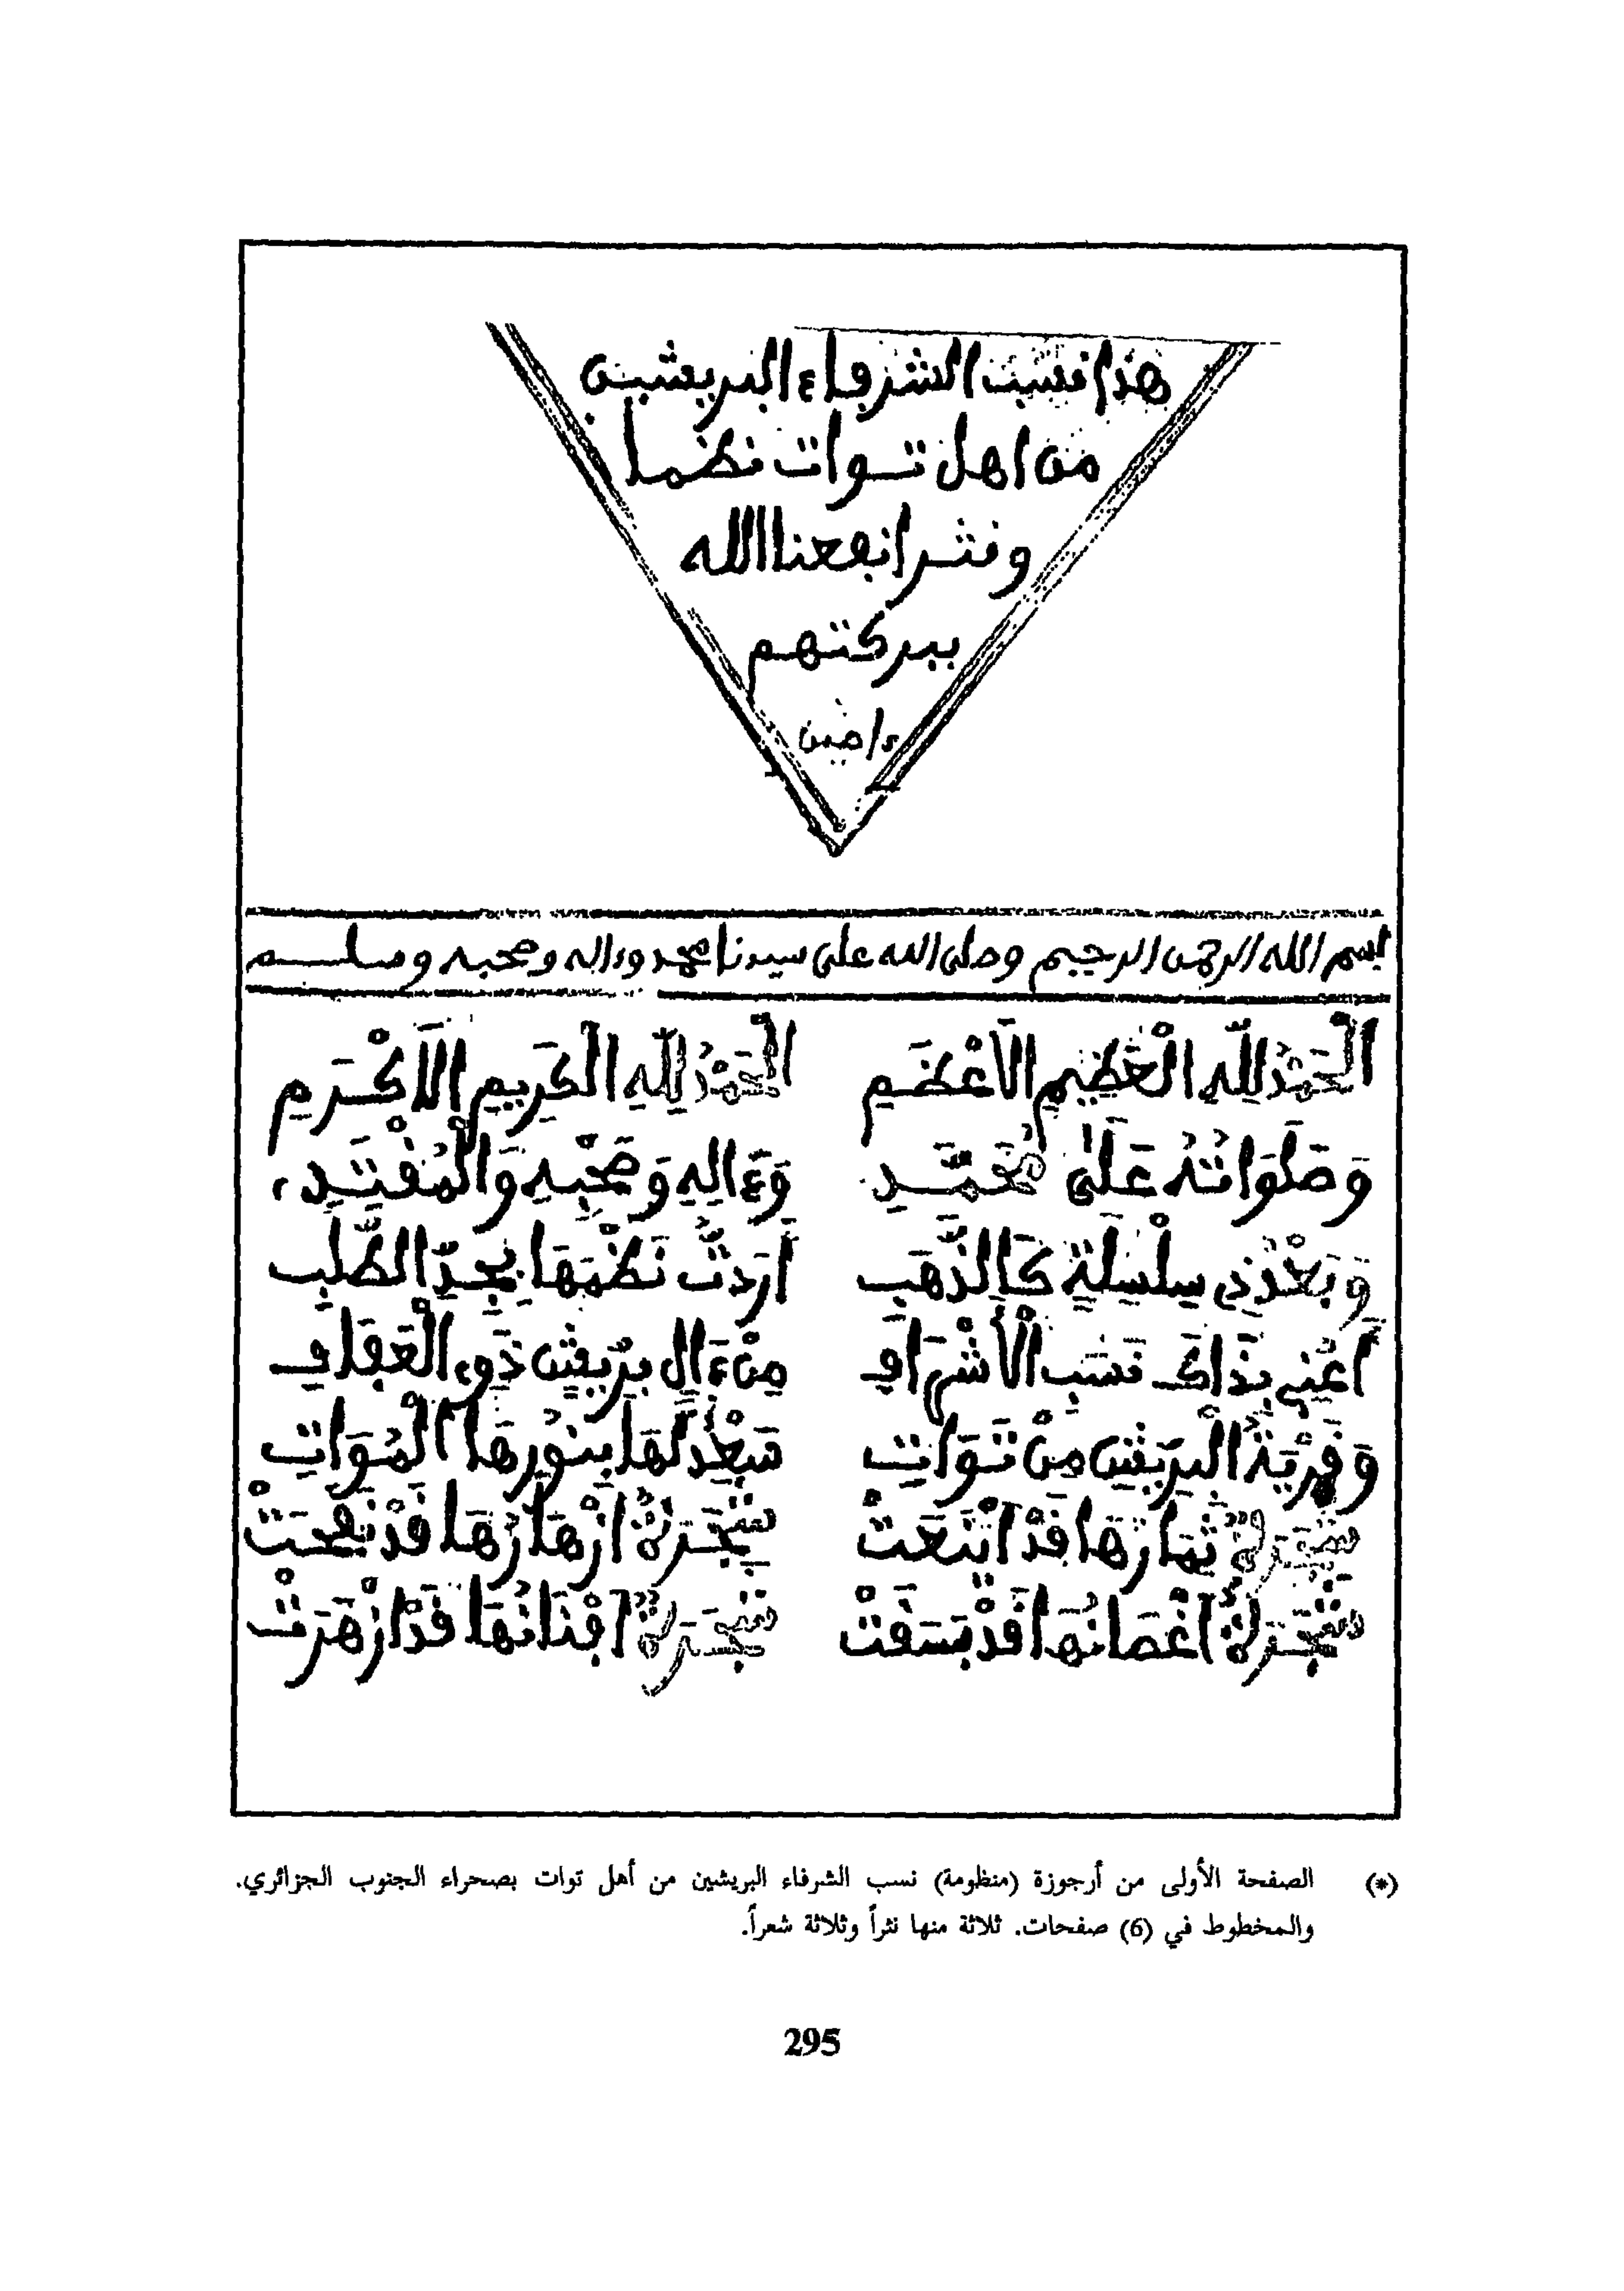 هذا نسب الشرفاء البريشيين
من اهل توات نظما
ونثرا نفعنا الله
ببركتهم
ءامين
بسم الله الرحمن الرحيم وصلى الله على سيدنا محمد وءاله وصحبه وسلم
اَلْحَمْدُ لِلَّهِ الْعَظِيمِ الَاعْظَمِ اَلْحَمْدُ لِلَّهِ الْكَرِيمِ الَاكْرَمِ
وَصَلَوَاتُهُ عَلَى مُحَمَّدِ وَءَالِهِ وَصَحْبِهِ وَالْمُقْتَدِ،
وَبَعْدُ ذِي سِلْسِلَةٌ كَالذَّهَبِ أَرَدتُّ نَظْمَهَا بِجِدِّ الطَّلَبِ
أَعْنِي بِذَاكَ نَسَبَ الْأَشْرَافِ مِنْ ءَالِ بِرِّيشِنَ ذَوِي الْعَفَافِ
وَقَرْيَةُ الْبِرِّيشِن مِنْ تَوَاتِ سَعْدٌ لَهَا بِنُورِهَا الْمُوَاتِ
شَجَرَةٌ ثِمَارُهَا قَدْ ايْنَعَتْ شَجَرَةٌ ازْهَارُهَا قَدْ نَفَحَتْ
شَجَرَةٌ اغْصَانُهَا قَدْ بَسَقَتْ شَجَرَةٌ افْنَانُهَا قَدْ ازْهَرَتْ
(*) الصفحة الأولى من أرجوزة (منظومة) نسب الشرفاء البريشين من أهل توات بصحراء الجنوب الجزائري.
والمخطوط في (6) صفحات. ثلاثة منها نثراً وثلاثة شعراً.
295